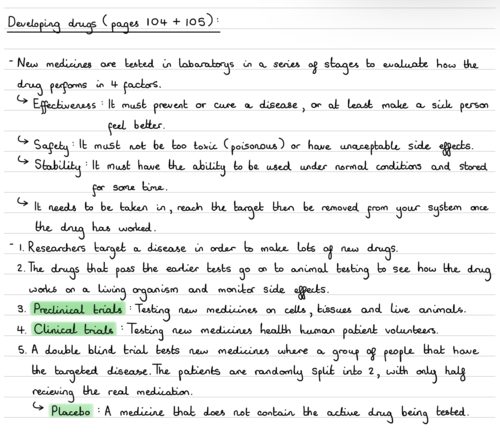 Developing drugs (pages 104 + 105):
- New medicines are tested in labaratorys in a series of stages to evaluate how the
drug performs in 4 factors.
↳ Effectiveness: It must prevent or cure a disease, or at least make a sick person
feel better.
↳ Safety: It must not be too toxic (poisonous) or have unacceptable side effects.
↳ Stability: It must have the ability to be used under normal conditions and stored
for some time.
↳ It needs to be taken in, reach the target then be removed from your system once
the drug has worked.
- 1. Researchers target a disease in order to make lots of new drugs.
2. The drugs that pass the earlier tests go on to animal testing to see how the drug
works on a living organism and monitor side effects.
3. Preclinical trials: Testing new medicines on cells, tissues and live animals.
4. Clinical trials: Testing new medicines health human patient volunteers.
5. A double blind trial tests new medicines where a group of people that have
the targeted disease. The patients are randomly split into 2, with only half
recieving the real medication.
↳ Placebo: A medicine that does not contain the active drug being tested.